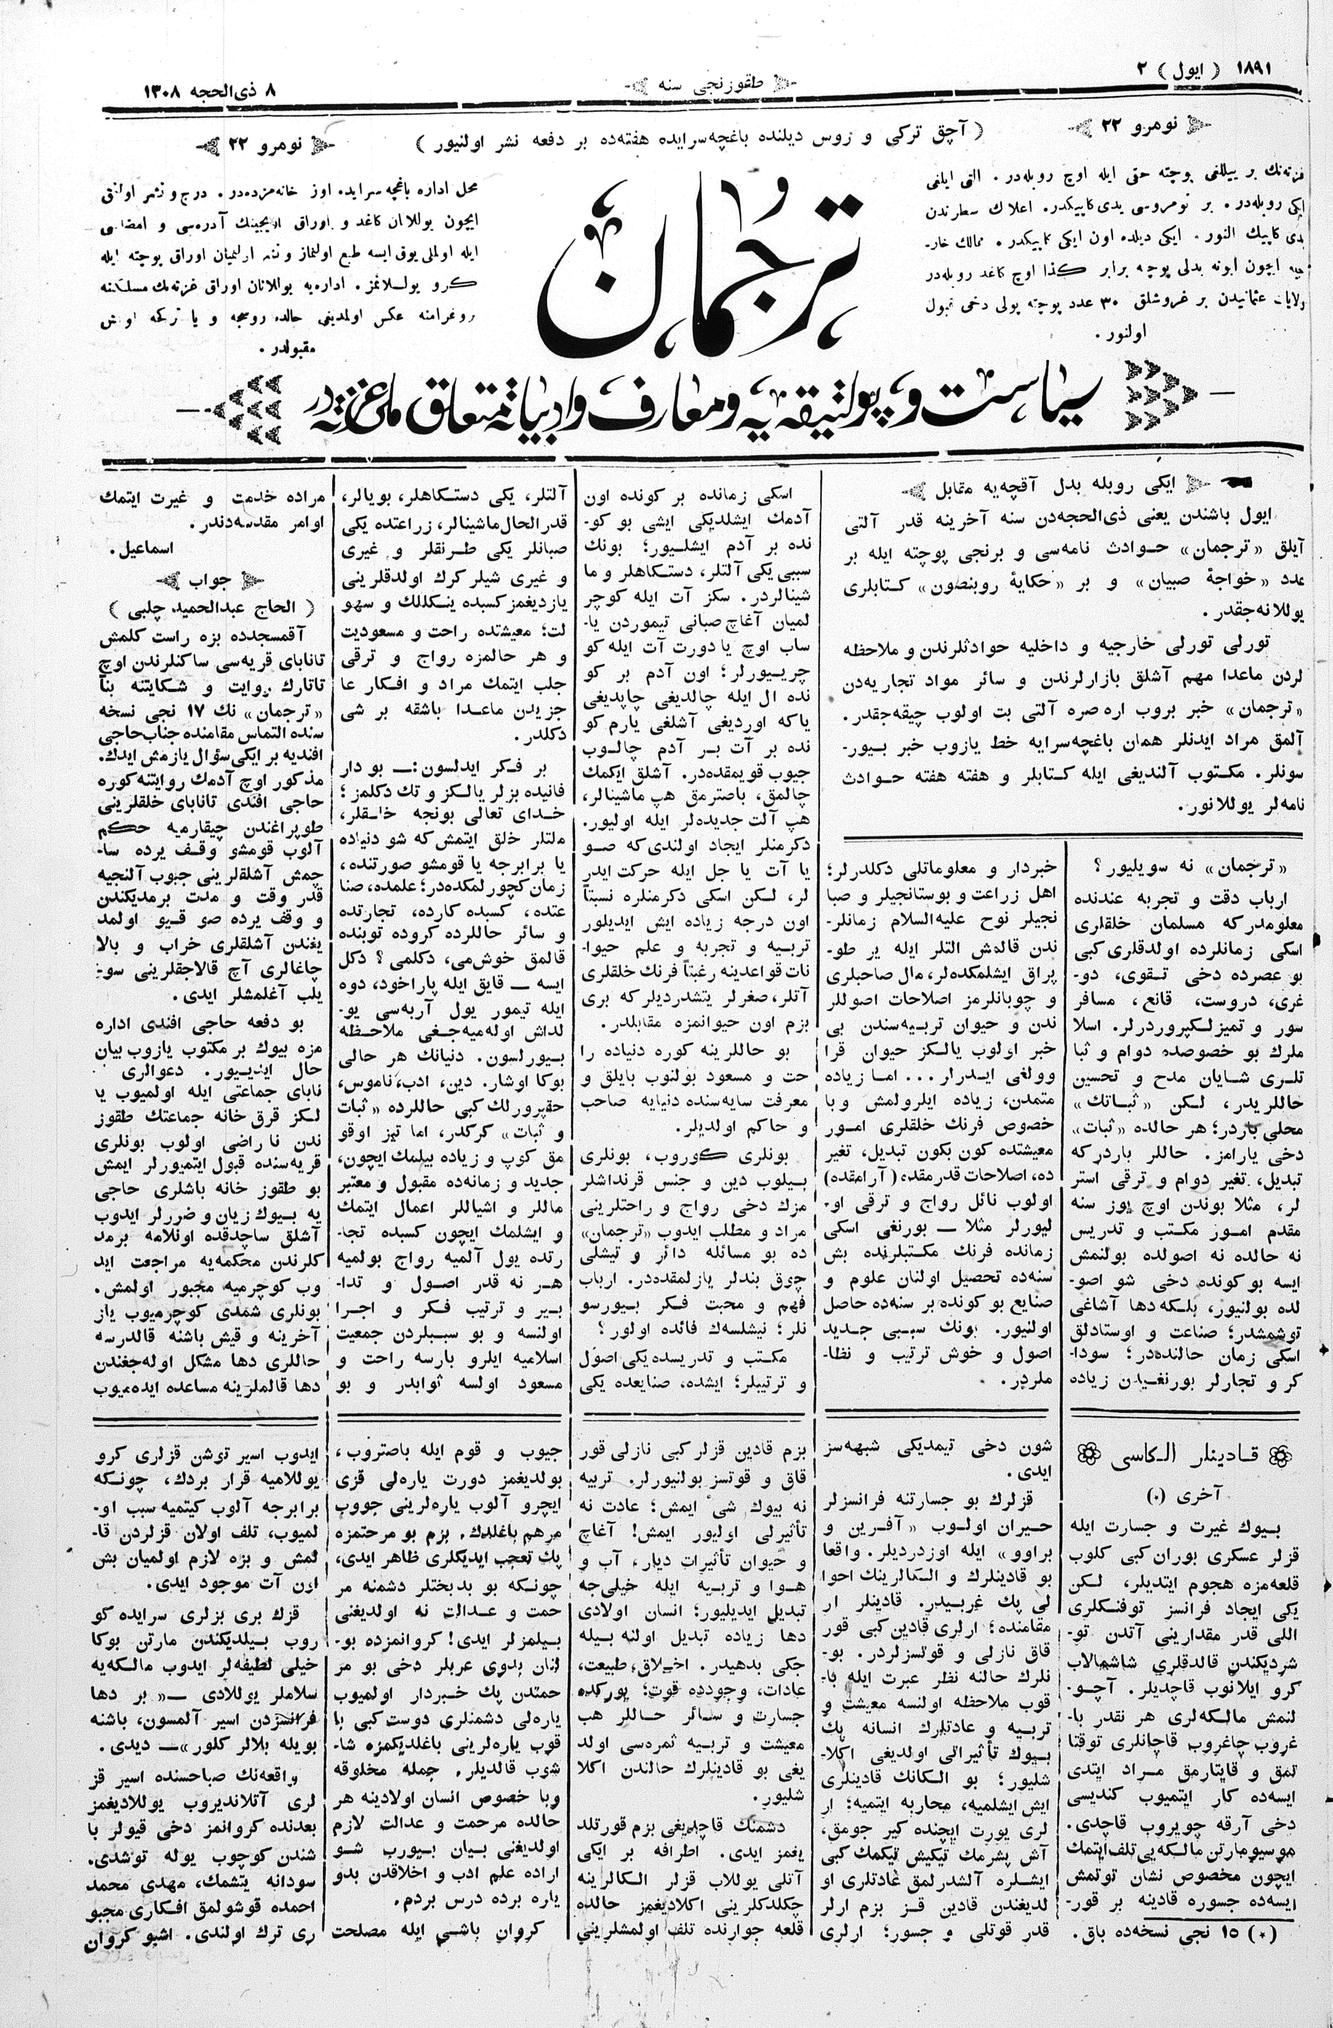 ١٨٩١ ( ايول ) ٢
طقوزنجی سنه
٨ ذی‌الحجه ١٣٠٨
نومرو ٢٢
( آچق ترکی و روس دیلنده باغچه‌سرایده هفته‌ده بر دفعه نشر اولنیور )
نومرو ٢٢
غزته‌نك بر ییللغی پوچته حقی ایله اوچ روبله‌در . التی ایلغی
ایکی روبله‌در . بر نومروسی یدی کاپیکدر . اعلانك سطرندن
یدی کاپیك النور . ایکی دیلده اون ایکی کاپیکدر . ممالك خار-
جیه ایچون ابونه بدلی پوچه برابر کذا اوچ کاغد روبله‌در
ولایات عثمانیدن بر غروشلق ٣٠ عدد پوچته پولی دخی قبول
اولنور .
ترجمان
محل اداره باغچه سرایده اوز خانه‌مزده‌در . درج و نشر اولنمق
ایچون یوللانان کاغد و اوراق ایه‌جینك آدره‌سی و امضاسی
ایله اولمالی یوق ایسه طبع اولنماز و نشر اولنمیان اوراق پوچته ایله
کرو یوللانمز . اداره‌یه یوللانان اوراق غزته‌نك مسلکنه
پروغرامنه عکس اولمدیغی حالده روسچه و یا ترکچه اولسه
مقبولدر .
سیاست و پولتیقه‌یه و معارف و ادبیاته متعلق ملی غزته‌در
ایکی روبله بدل آقچه‌یه مقابل
ایول باشندن یعنی ذی‌الحجه‌دن سنه آخرینه قدر آلتی
آیلق «ترجمان» حوادث نامه‌سی و برنجی پوچته ایله بر
عدد «خواجهٔ صبیان» و بر «حکایهٔ روبنصون» کتابلری
یوللانه‌جقدر .
تورلی تورلی خارجیه و داخلیه حوادثلرندن و ملاحظه
لردن ماعدا مهم آشلق بازارلرندن و سائر مواد تجاریه‌دن
«ترجمان» خبر بروب اره صره آلتی بت اولوب چیقه‌جقدر .
آلمق مراد ایدنلر همان باغچه‌سرایه خط یازوب خبر بیور-
سونلر . مکتوب آلندیغی ایله کتابلر و هفته هفته حوادث
نامه‌لر یوللانور .
«ترجمان» نه سویلیور ؟
ارباب دقت و تجربه عندنده
معلومدرکه مسلمان خلقلری
اسکی زمانلرده اولدقلری کبی
بو عصرده دخی تقوی، دو-
غری، دروست، قانع، مسافر
سور و تمیز لکپروردرلر. اسلا
ملرك بو خصوصده دوام و ثبا
تلری شایان مدح و تحسین
حاللریدر، لکن «ثباتك»
محلی باردر؛ هر حالده «ثبات»
دخی یارامز. حاللر باردرکه
تبدیل، تغیر دوام و ترقی استر
لر، مثلا بوندن اوچ یوز سنه
مقدم امور مکتب و تدریس
نه حالده نه اصولده بولنمش
ایسه بو کونده دخی شو اصو-
لده بولنیور، بلکه دها آشاغی
توشمشدر؛ صناعت و اوستادلق
اسکی زمان حالنده‌در؛ سودا-
کر و تجارلر بورنغیدن زیاده
خبردار و معلوماتلی دکلدرلر؛
اهل زراعت و بوستانجیلر و صبا
نجیلر نوح علیه‌السلام زمانلر-
ندن قالمش التلر ایله یر طو-
پراق ایشلمکده‌لر، مال صاحبلری
و چوبانلرمز اصلاحات اصوللر
ندن و حیوان تربیه‌سندن بی
خبر اولوب یالکز حیوان قرا
وولغی ایدرلر ... اما زیاده
متمدن، زیاده ایلرولمش وبا
خصوص فرنك خلقلری امور
معیشتده کون بکون تبدیل، تغیر
ده، اصلاحات قدرمقده (آرامقده)
اولوب نائل رواج و ترقی او-
لیورلر مثلا — بورنغی اسکی
زمانده فرنك مکتبلرنده بش
سنه‌ده تحصیل اولنان علوم و
صنایع بو کونده بر سنه‌ده حاصل
اولنیور. بونك سببی جدید
اصول و خوش ترتیب و نظا-
ملردر .
اسکی زمانده بر کونده اون
آدمك ایشلدیکی ایشی بو کو-
نده بر آدم ایشلیور؛ بونك
سببی یکی آلتلر، دستکاهلر و ما
شینالردر. سکز آت ایله کوچر
لمیان آغاچ صبانی تیموردن یا-
ساب اوچ یا دورت آت ایله کو
چریورلر؛ اون آدم بر کو
نده ال ایله چالدیغی چاپدیغی
یاکه اوردیغی آشلغی یارم کو
نده بر آت بر آدم چالوب
جیوب قویمقده‌در. آشلق ایکمك
چالمق، باصترمق هپ ماشینالر،
هپ آلت جدیده‌لر ایله اولیور.
دکرمنلر ایجاد اولندی که صو
یا آت یا جل ایله حرکت ایدر
لر، لکن اسکی دکرمنلره نسبتاً
اون درجه زیاده ایش ایدیلور
تربیه و تجربه و علم حیوا-
نات قواعدینه رغبتاً فرنك خلقلری
آتلر، صغرلر یتشدردیلرکه بری
بزم اون حیوانمزه مقابلدر.
بو حاللرینه کوره دنیاده را
حت و مسعود بولنوب بایلق و
معرفت سایه‌سنده دنیایه صاحب
و حاکم اولدیلر.
بونلری کوروب، بونلری
بیلوب دین و جنس قرنداشلر
مزك دخی رواج و راحتلرینی
مراد و مطلب ایدوب «ترجمان»
ده بو مسائله دائر و تیشلی
چوق بندلر یازلمقده‌در. ارباب
فهم و محبت فکر بیورسو
نلر؛ نیشلسه‌ك فائده اولور ؟
مکتب و تدریسده یکی اصول
و ترتیبلر؛ ایشده، صنایعده یکی
آلتلر، یکی دستکاهلر، بویالر،
قدرالحال ماشینالر، زراعتده یکی
صبانلر یکی طرنقلر و غیری
و غیری شیلر کرك اولدقلرینی
یازدیغمز کسبده ینکللك و سهو
لت؛ معیشتده راحت و مسعودیت
و هر حالمزه رواج و ترقی
جلب ایتمك مراد و افکار عا
جزیدن ماعدا باشقه بر شی
دکلدر.
بر فکر ایدلسون: — بو دار
فانیده بزلر یالکز و تك دکلمز؛
خدای تعالی بونجه خلقلر،
ملتلر خلق ایتمش که شو دنیاده
یا برابرجه یا قومشو صورتنده،
زمان کچورلمکده‌در؛ علمده، صنا
عتده، کسبده کارده، تجارتده
و سائر حاللرده کروده توبنده
قالمق خوش‌می، دکلمی ؟ دکل
ایسه — قایق ایله پاراخود، دوه
ایله تیمور یول آربه‌سی یو-
لداش اوله‌میه‌جغی ملاحظه
بیورلسون. دنیانك هر حالی
بوکا اوشار. دین، ادب، ناموس،
حقپرورلك کبی حاللرده «ثبات
و ثبات» کرکدر، اما تیز اوقو
مق کوپ و زیاده بیلمك ایچون،
جدید و زمانه‌ده مقبول و معتبر
ماللر و اشیاللر اعمال ایتمك
و ایشلمك ایچون کسبده تجا-
رتده یول آلمیه رواج بولمیه
هر نه قدر اصول و تدا-
بیر و ترتیب فکر و اجرا
اولنسه و بو سببلردن جمعیت
اسلامیه ایلرو بارسه راحت و
مسعود اولسه ثوابدر و بو
مراده خدمت و غیرت ایتمك
اوامر مقدسه‌دندر.
اسماعیل.
جواب
( الحاج عبدالحمید چلبی )
آقمسجدده بزه راست کلمش
تانابای قریه‌سی ساکنلرندن اوچ
تاتارك روایت و شکایتنه بنأ
«ترجمان» نك ١٧ نجی نسخه
سنده التماس مقامنده جناب حاجی
افندیه بر ایکی سؤال یازمش ایدك.
مذکور اوچ آدمك روایتنه کوره
حاجی افندی تانابای خلقلرینی
طوپراغندن چیقارمیه حکم
آلوب قومشو وقف یرده سا-
چمش آشلقلرینی جیوب آلنجیه
قدر وقت و مدت برمدیکندن
و وقف یرده صو قیو اولمد
یغندن آشلقلری خراب و بالا
چاغالری آچ قالاجقلرینی سو-
یلب آغلمشلر ایدی.
بو دفعه حاجی افندی اداره
مزه بیوك بر مکتوب یازوب بیان
حال ایدیور. دعوالری
تابای جماعتی ایله اولمیوب یا
لکز قرق خانه جماعتك طقوز
ندن ناراضی اولوب بونلری
قریه‌سنده قبول ایتمیورلر ایمش
بو طقوز خانه باشلری حاجی
یه بیوك زیان و ضررلر ایدوب
آشلق ساچدقده اونلامه برمد
کلرندن محکمه‌یه مراجعت اید
وب کوچرمیه مجبور اولمش.
بونلری شمدی کوچرمیوب یاز
آخرینه و قیش باشنه قالدرسه
حاللری دها مشکل اوله‌جغندن
دها قالملرینه مساعده ایده‌میوب
قادینلر الکاسی
آخری (٠)
بیوك غیرت و جسارت ایله
قزلر عسکری بوران کبی کلوب
قلعه‌مزه هجوم ایتدیلر، لکن
یکی ایجاد فرانسز توفنکلری
اللی قدر مقدارینی آتدن تو-
شردیکندن قالدقلری شاشمالاب
کرو ایلانوب قاچدیلر. آچو-
لنمش مالکه‌لری هر نقدر با-
غروب چاغروب قاچانلری توقتا
تمق و قایتارمق مراد ایتدی
ایسه‌ده کار ایتمیوب کندیسی
دخی آرقه چویروب قاچدی.
موسیو مارتن مالکه‌یی تلف ایتمك
ایچون مخصوص نشان توتمش
ایسه‌ده جسوره قادینه بر قور-
(٠) ١٥ نجی نسخه‌ده باق.
شون دخی تیمدیکی شبهه‌سز
ایدی.
قزلرك بو جسارتنه فرانسزلر
حیران اولوب «آفرین و
براوو» ایله اوزدردیلر. واقعا
بو قادینلرك و الکالرینك احوا
لی پك غریبدر. قادینلر ار
مقامنده؛ ارلری قادین کبی قور
قاق نازلی و قوتسزلردر. بو-
نلرك حالنه نظر عبرت ایله با-
قوب ملاحظه اولنسه معیشت و
تربیه و عادتلرك انسانه پك
بیوك تأثیراتی اولدیغی اکلا-
شلیور؛ بو الکانك قادینلری
ایش ایشلمیه، محاربه ایتمیه؛ ار
لری یورت ایچنده کیر جومق،
آش پشرمك تیکیش تیکمك کبی
ایشلره آلشدرلمق عادتلری او
لدیغندن قادین قز بزم ارلر
قدر قوتلی و جسور؛ ارلری
بزم قادین قزلر کبی نازلی قور
قاق و قوتسز بولنیورلر. تربیه
نه بیوك شیٔ ایمش؛ عادت نه
تأثیرلی اولیور ایمش! آغاچ
و حیوان تأثیرات دیار، آب و
هوا و تربیه ایله خیلی‌جه
تبدیل ایدیلیور؛ انسان اولادی
دها زیاده تبدیل اولنه بیله
جکی بدهیدر. اخلاق، طبیعت،
عادات، وجودده قوت؛ یورکده
جسارت و سائر حاللر هب
معیشت و تربیه ثمره‌سی اولد
یغی بو قادینلرك حالندن اکلا
شلیور.
دشمنك قاچدیغی بزم قورتلد
یغمز ایدی. اطرافه بر ایکی
آتلی یوللاب قزلر الکالرینه
چکلدکلرینی اکلادیغمز حالده
قلعه جوارنده تلف اولمشلرینی
جیوب و قوم ایله باصتروب،
بولدیغمز دورت یاره‌لی قزی
ایچرو آلوب یاره‌لرینی جووپ
مرهم باغلدك. بزم بو مرحتمزه
پك تعجب ایدیکلری ظاهر ایدی،
چونکه بو بدبختلر دشمنه مر
حمت و عدالت نه اولدیغنی
بیلمزلر ایدی! کروانمزده بو-
لنان بدوی عربلر دخی بو مر
حمتدن پك خبردار اولمیوب
یاره‌لی دشمنلری دوست کبی با
قوب یاره‌لرینی باغلدیکمزه شا-
شوب قالدیلر. جمله مخلوقه
وبا خصوص انسان اولادینه هر
حالده مرحمت و عدالت لازم
اولدیغنی بیان بیورب شو
اراده علم ادب و اخلاقدن بدو
یاره برده درس بردم.
کروان باشی ایله مصلحت
ایدوب اسیر توشن قزلری کرو
یوللامیه قرار بردك، چونکه
برابرجه آلوب کیتمیه سبب او-
لمیوب، تلف اولان قزلردن قا-
لمش و بزه لازم اولمیان بش
اون آت موجود ایدی.
قزك بری بزلری سرایده کو
روب بیلدیکندن مارتن بوکا
خیلی لطیفه‌لر ایدوب مالکه‌یه
سلاملر یوللادی —« بر دها
فرانسزدن اسیر آلمسون، باشنه
بویله بلالر کلور»— دیدی.
واقعه‌نك صباحسنده اسیر قز
لری آتلاندیروب یوللادیغمز
بعدنده کروانمز دخی قیولر با
شندن کوچوب یوله توشدی.
سودانه یتشمك، مهدی محمد
احمده قوشولمق افکاری مجبو
ری ترك اولندی. اشبو کروان